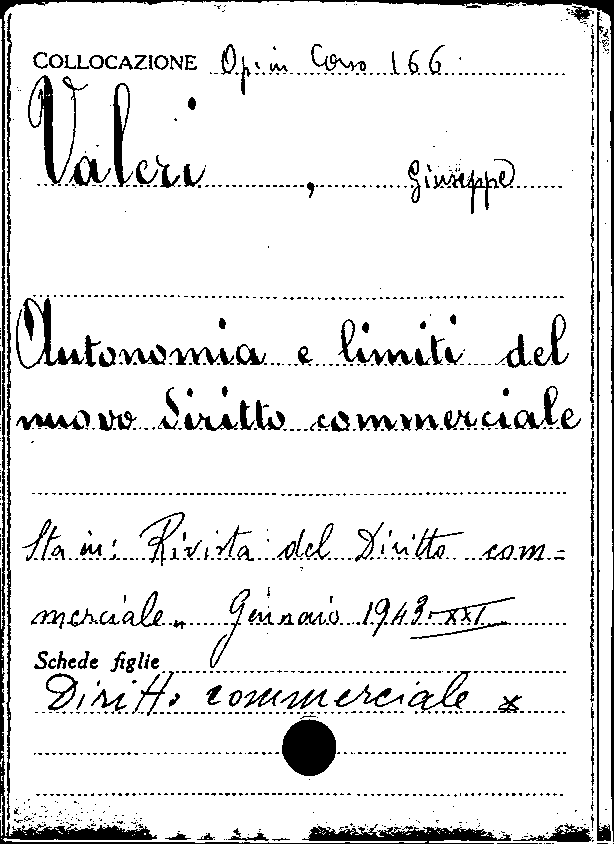 COLLOCAZIONE Op. in Corso 166
Valeri, Giuseppe
Autonomia e limiti del
nuovo diritto commerciale
Sta in: Rivista del Diritto com=
merciale. Gennaio 1943-XXI
Schede figlie
Diritto commerciale x